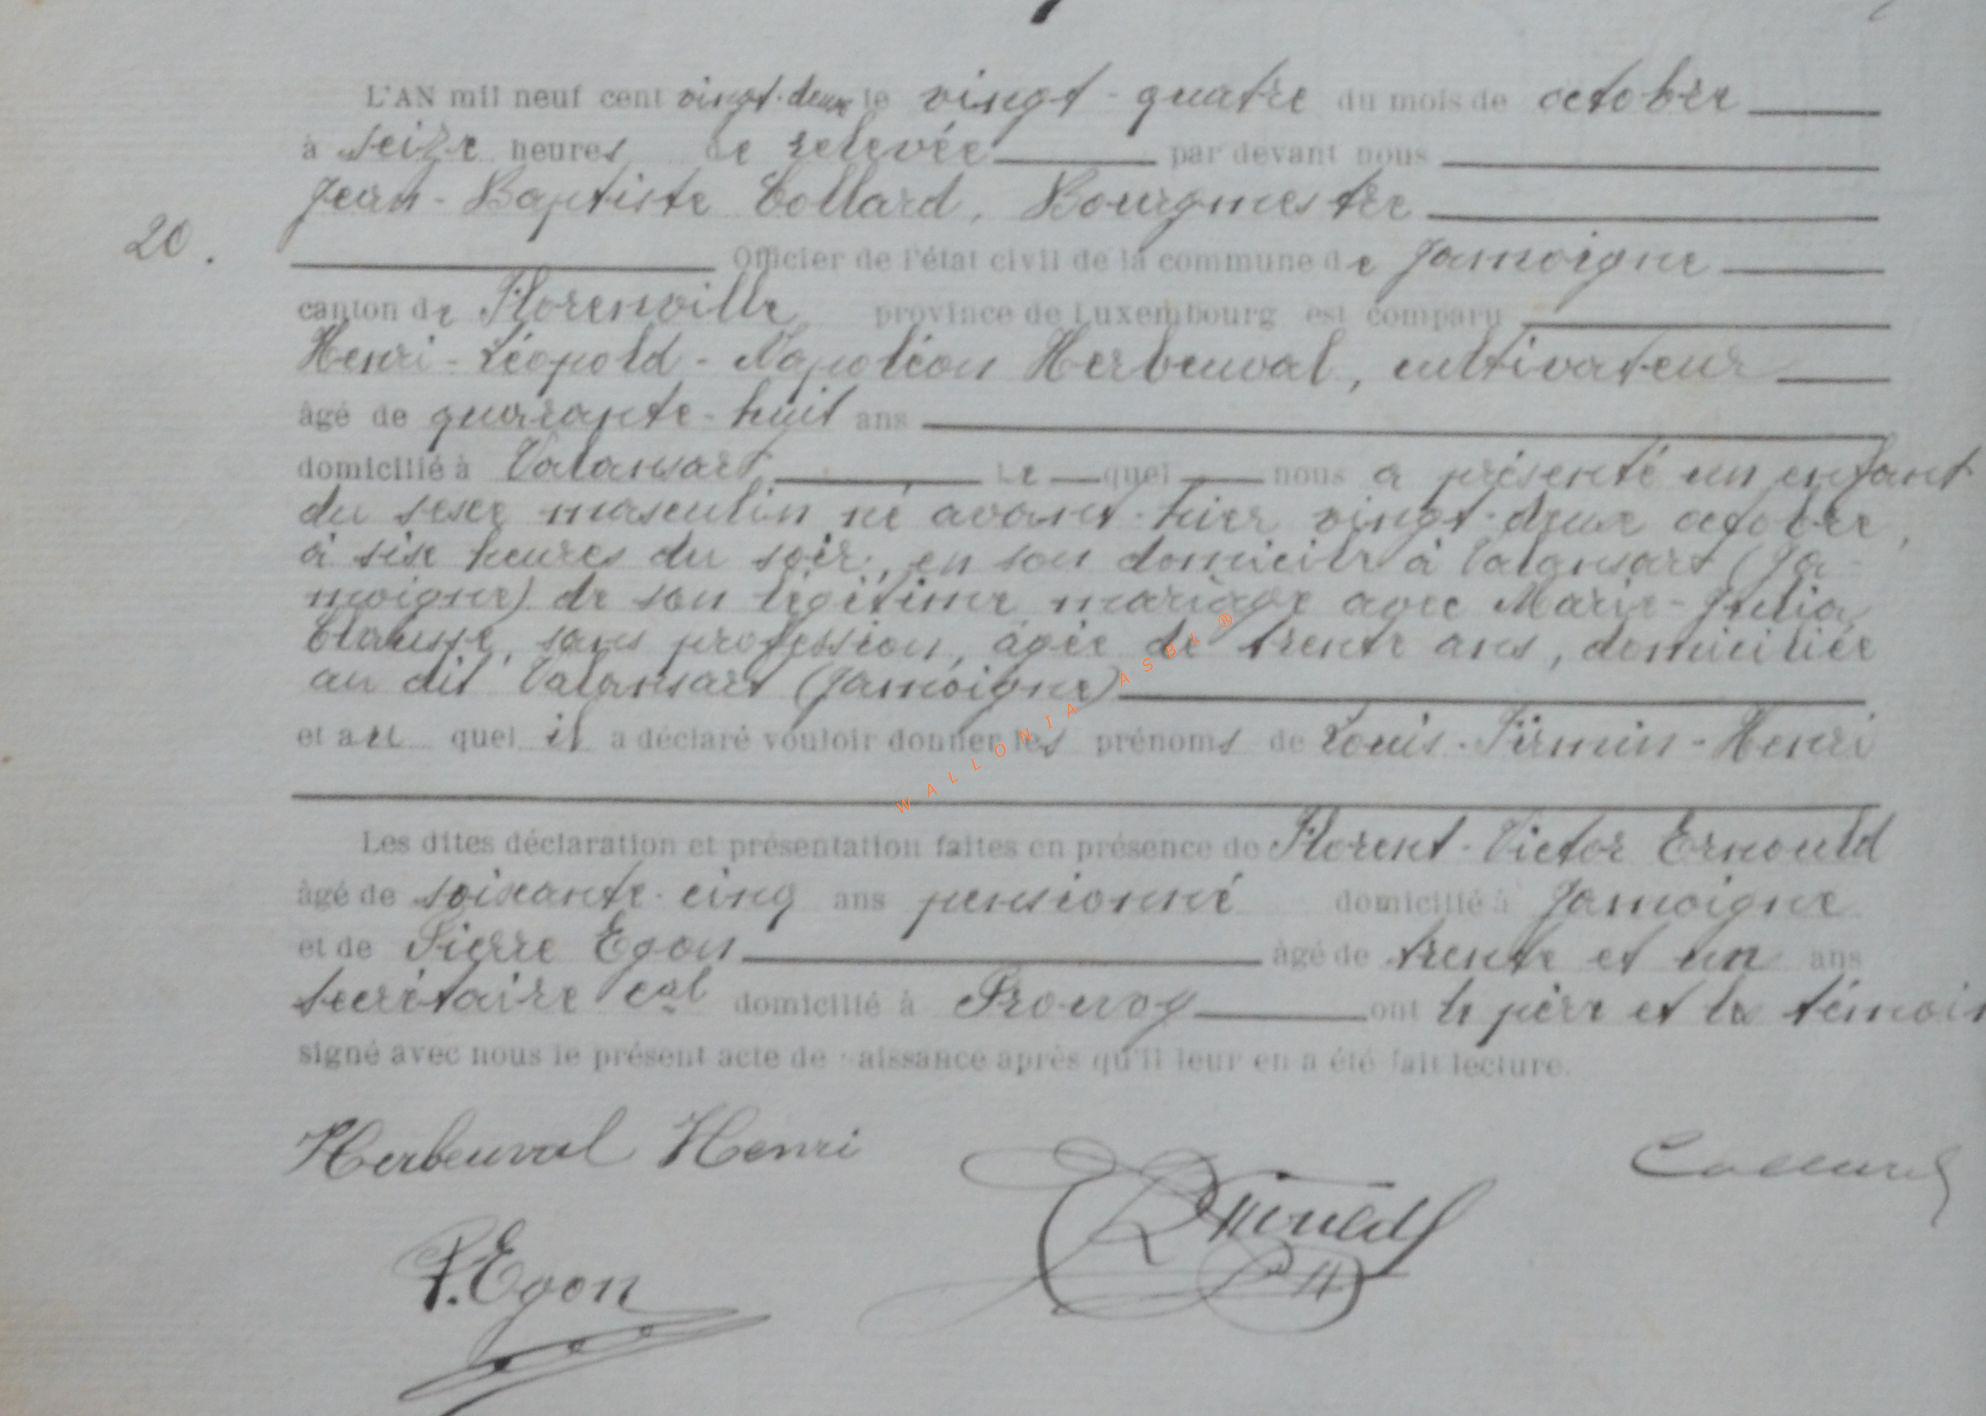 L'AN mil neuf cent vingt-deux le vingt-quatre du mois de octobre
à seize heures de relevée par devant nous
Jean-Baptiste Collard, Bourgmestre
20.
Officier de l'état civil de la commune de Jamoigne
canton de Florenville province de Luxembourg est comparu
Henri-Léopold-Napoléon Herbeuval, cultivateur
âgé de quarante-huit ans
domicilié à Valansart le quel nous a présenté un enfant
du sexe masculin né avant-hier vingt-deux octobre,
à six heures du soir, en son domicile à Valansart (Ja-
moigne) de son légitime mariage avec Marie-Julia
Clausse, sans profession, âgée de trente ans, domiciliée
au dit Valansart (Jamoigne)
et au quel il a déclaré vouloir donner les prénoms de Louis-Firmin-Henri
WALLONIA ASBL ®
Les dites déclaration et présentation faites en présence de Florent-Victor Ernould
âgé de soixante-cinq ans pensionné domicilié à Jamoigne
et de Pierre Egon âgé de trente et un ans
secrétaire cal domicilié à Prouvoy ont le père et les témoin
signé avec nous le présent acte de naissance après qu'il leur en a été fait lecture.
Herbeuval Henri
Collard
Ernould
P. Egon